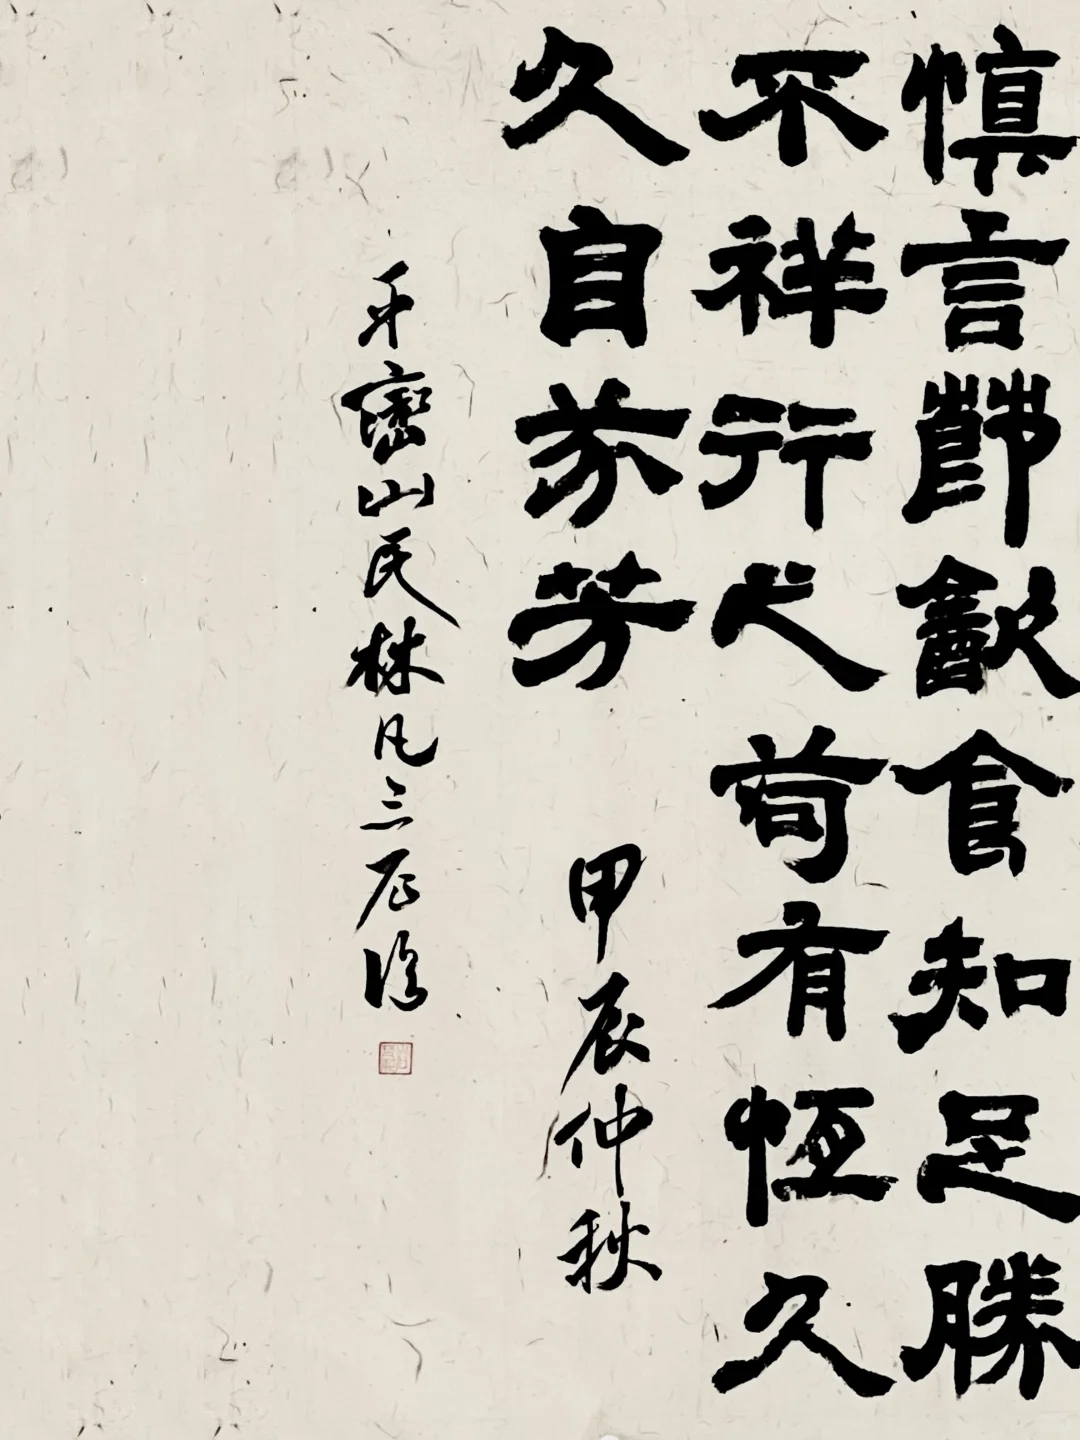 慎言節飲食知足勝
不祥行之苟有恆久
久自芬芳
甲辰仲秋
山民林凡三